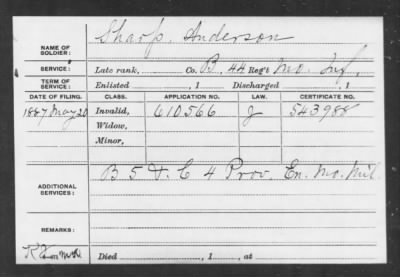 NAME OF SOLDIER: Sharp, Anderson
SERVICE: Late rank, Co. B, 44 Reg't Mo. Inf.
TERM OF SERVICE: Enlisted , 1 Discharged , 1
DATE OF FILING. CLASS. APPLICATION NO. LAW. CERTIFICATE NO.
1887 May 20 Invalid, 610566 J 543988
Widow,
Minor,
ADDITIONAL SERVICES: B 5 & C 4 Prov. En. Mo. Mil.
REMARKS:
Died , 1 , at